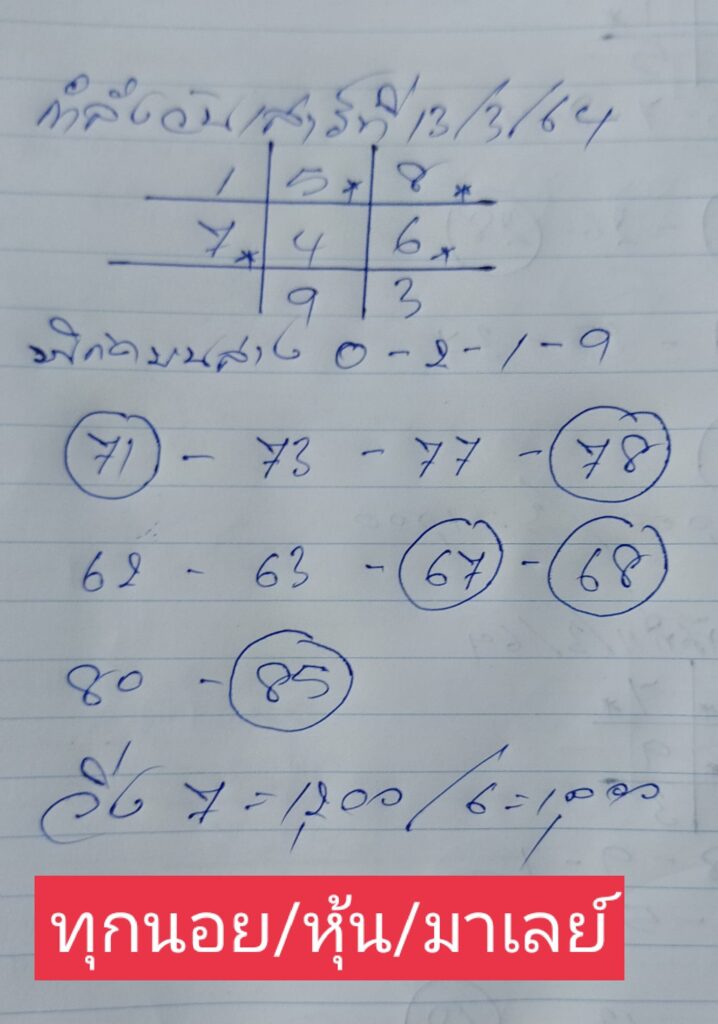 กำลังวันเสาร์ที่ 13/3/64
1 5* 8*
7* 4 6*
9 3
พิกัดบนล่าง 0 - 2 - 1 - 9
71 - 73 - 77 - 78
62 - 63 - 67 - 68
80 - 85
วิ่ง 7 = 1,200 / 6 = 1,000
ทุกนอย/หุ้น/มาเลย์